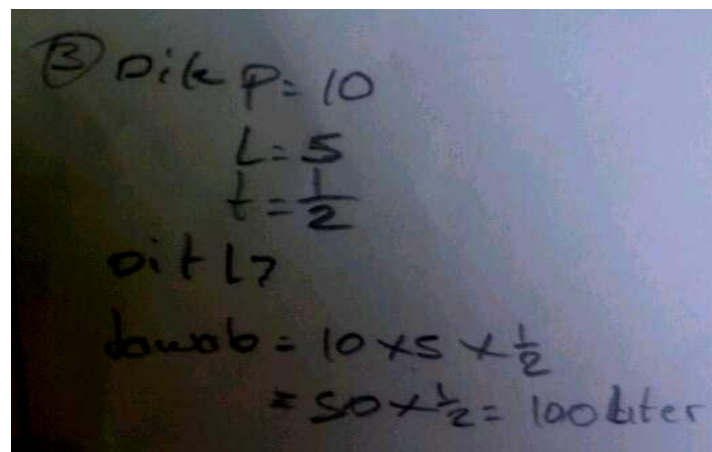 ③ Dik P = 10
L = 5
t = 1/2
Dit L?
Jawab = 10 x 5 x 1/2
= 50 x 1/2 = 100 Liter